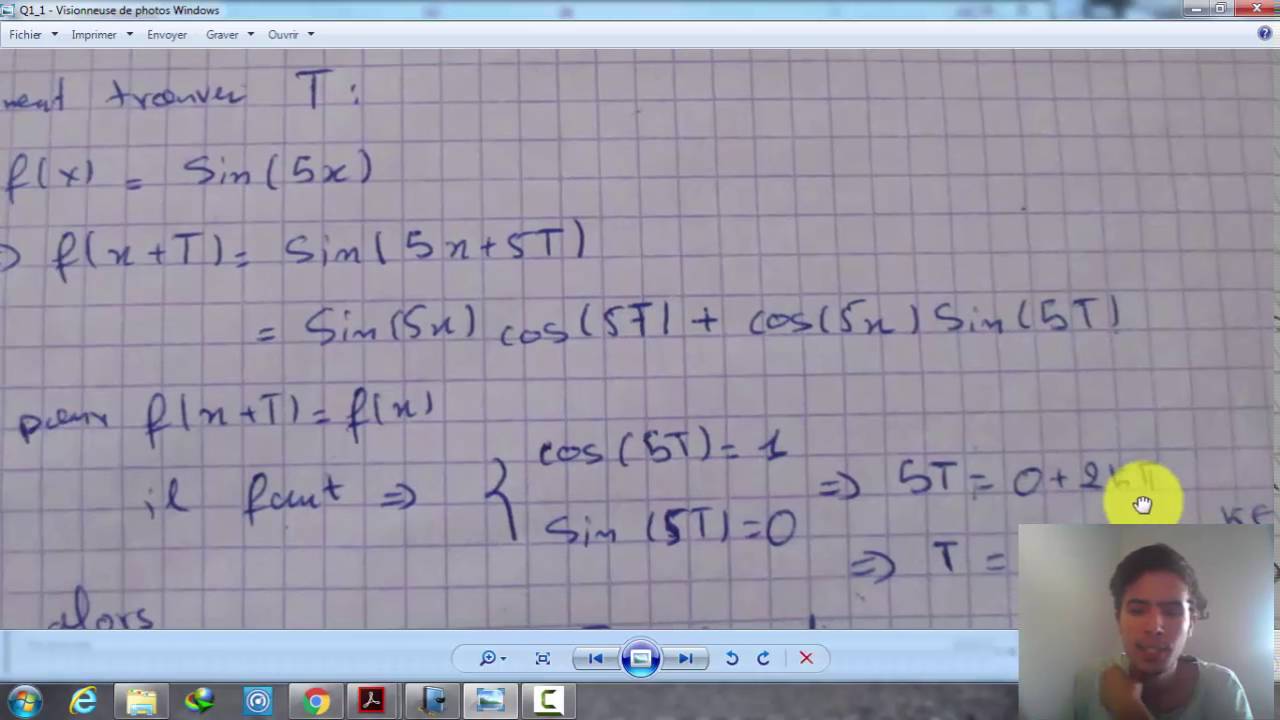 Q1_1 - Visionneuse de photos Windows
Fichier Imprimer Envoyer Graver Ouvrir
T :
f(x) = Sin(5x)
f(x+T) = Sin(5x+5T)
= Sin(5x) cos(5T) + cos(5x) Sin(5T)
pour f(x+T) = f(x)
cos(5T) = 1
il faut => { => 5T = 0 + 2kπ
Sin(5T) = 0
=> T =
alors